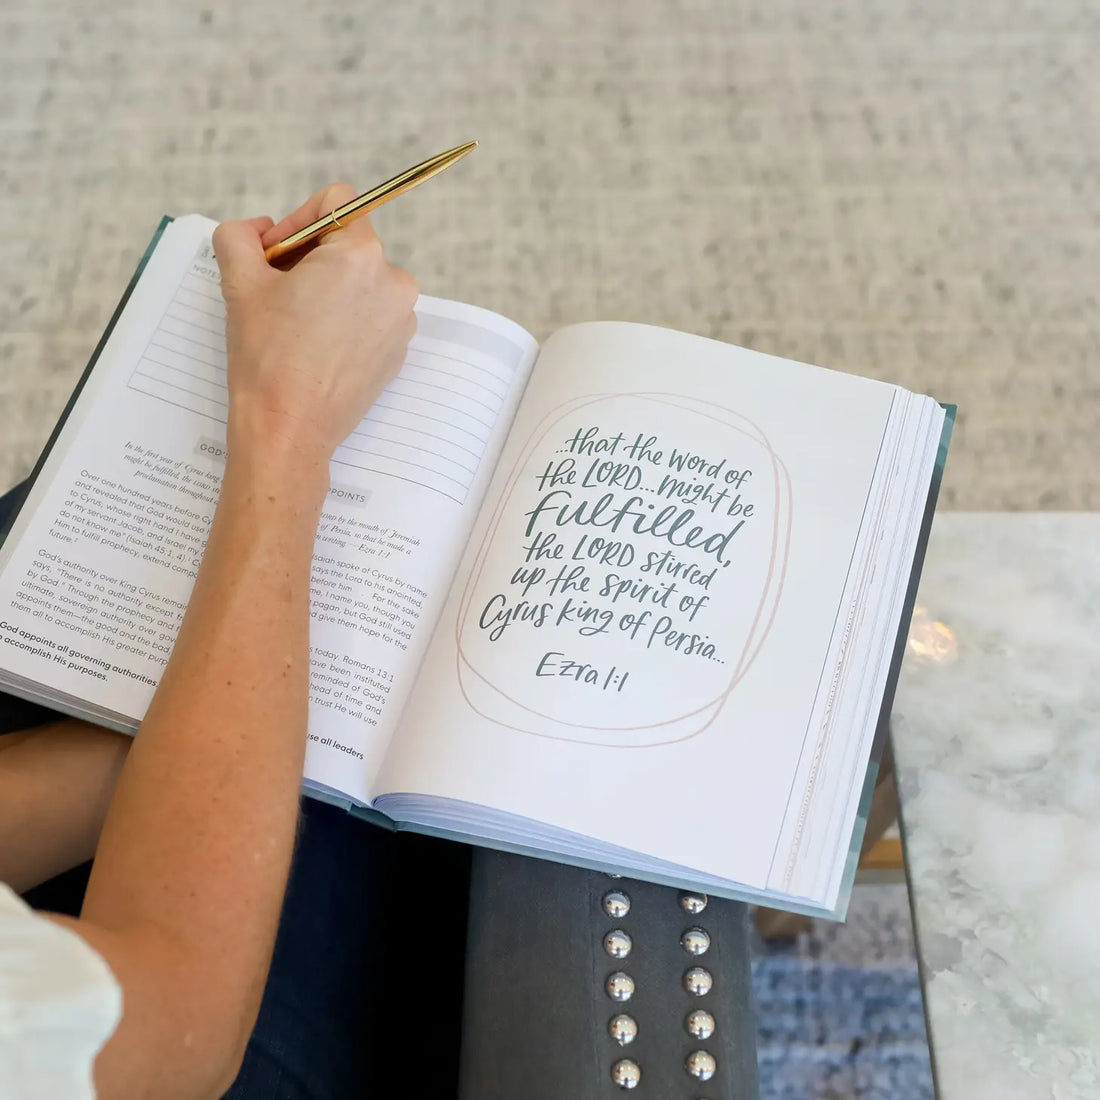 NOTES
GOD'S
POINTS
In the first year of Cyrus king
might be fulfilled, the LORD
by the mouth of Jeremiah
proclamation throughout
of Persia, so that he made a
writing —Ezra 1:1
Over one hundred years before Cy
Isaiah spoke of Cyrus by name
and revealed that God would use
says the Lord to his anointed,
to Cyrus, whose right hand I have
before him . . . For the sake
of my servant Jacob, and Israel my
name, I name you, though you
do not know me" (Isaiah 45:1, 4).
pagan, but God still used
Him to fulfill prophecy, extend
and give them hope for the
future.²
God's authority over King Cyrus remain
today. Romans 13:1
says, "There is no authority except
have been instituted
by God." Through the prophecy and
reminded of God's
ultimate, sovereign authority over
ahead of time and
appoints them—the good and the bad
trust He will use
them all to accomplish His greater
God appoints all governing authorities,
use all leaders
accomplish His purposes.
...that the word of
the LORD...might be
fulfilled,
the LORD stirred
up the spirit of
Cyrus king of Persia...
Ezra 1:1